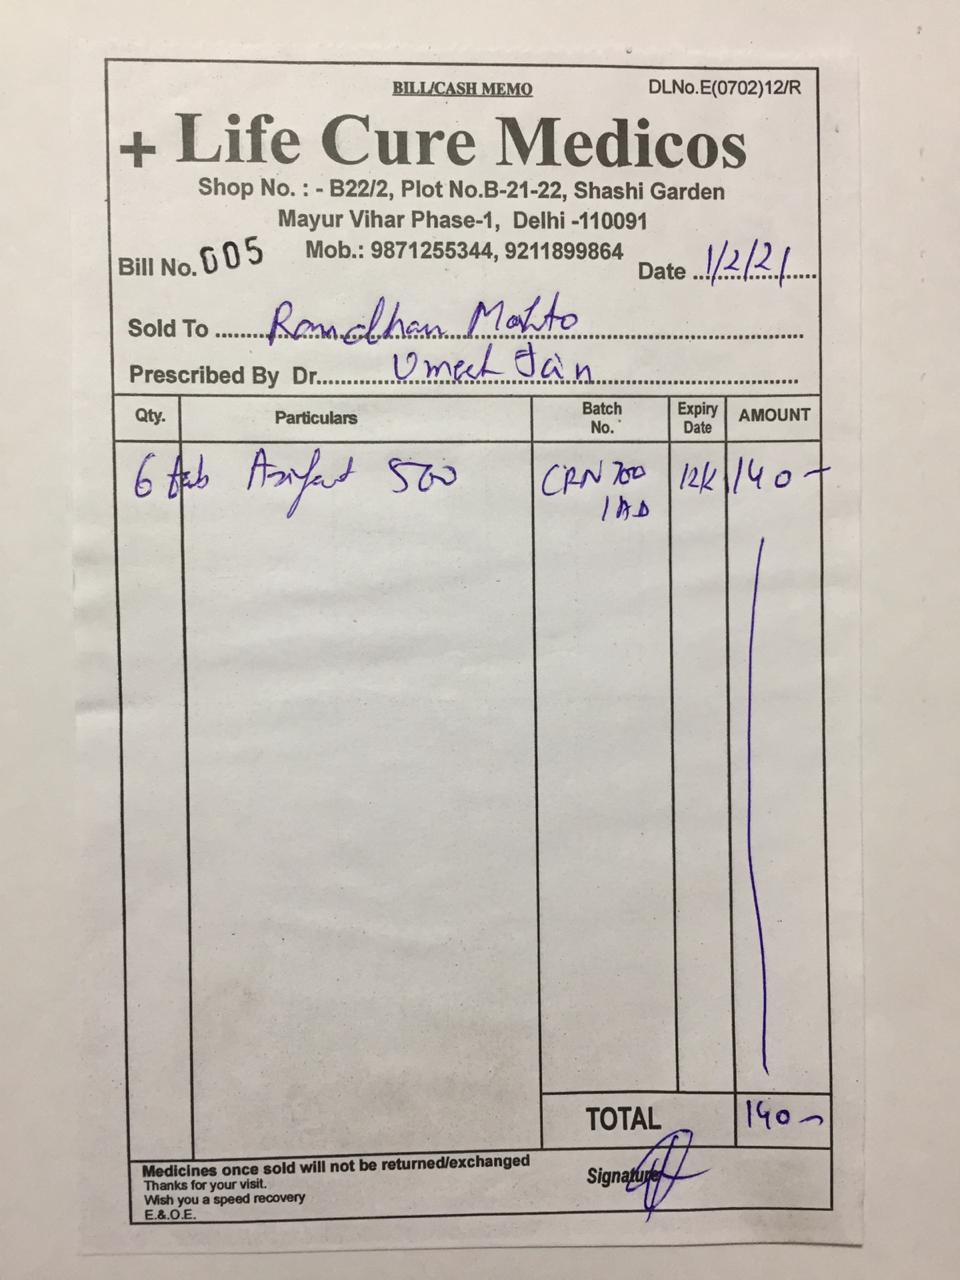 BILL/CASH MEMO DLNo.E(0702)12/R
+ Life Cure Medicos
Shop No. : - B22/2, Plot No.B-21-22, Shashi Garden
Mayur Vihar Phase-1, Delhi -110091
Mob.: 9871255344, 9211899864
Bill No. 005 Date 1/2/21
Sold To Ramdhan Mahto
Prescribed By Dr. Umesh Jain
Qty. Particulars Batch No. Expiry Date AMOUNT
6 tab 500 CRN 700 140-
1AD
TOTAL 140-
Medicines once sold will not be returned/exchanged
Thanks for your visit.
Wish you a speed recovery
E.&.O.E.
Signature